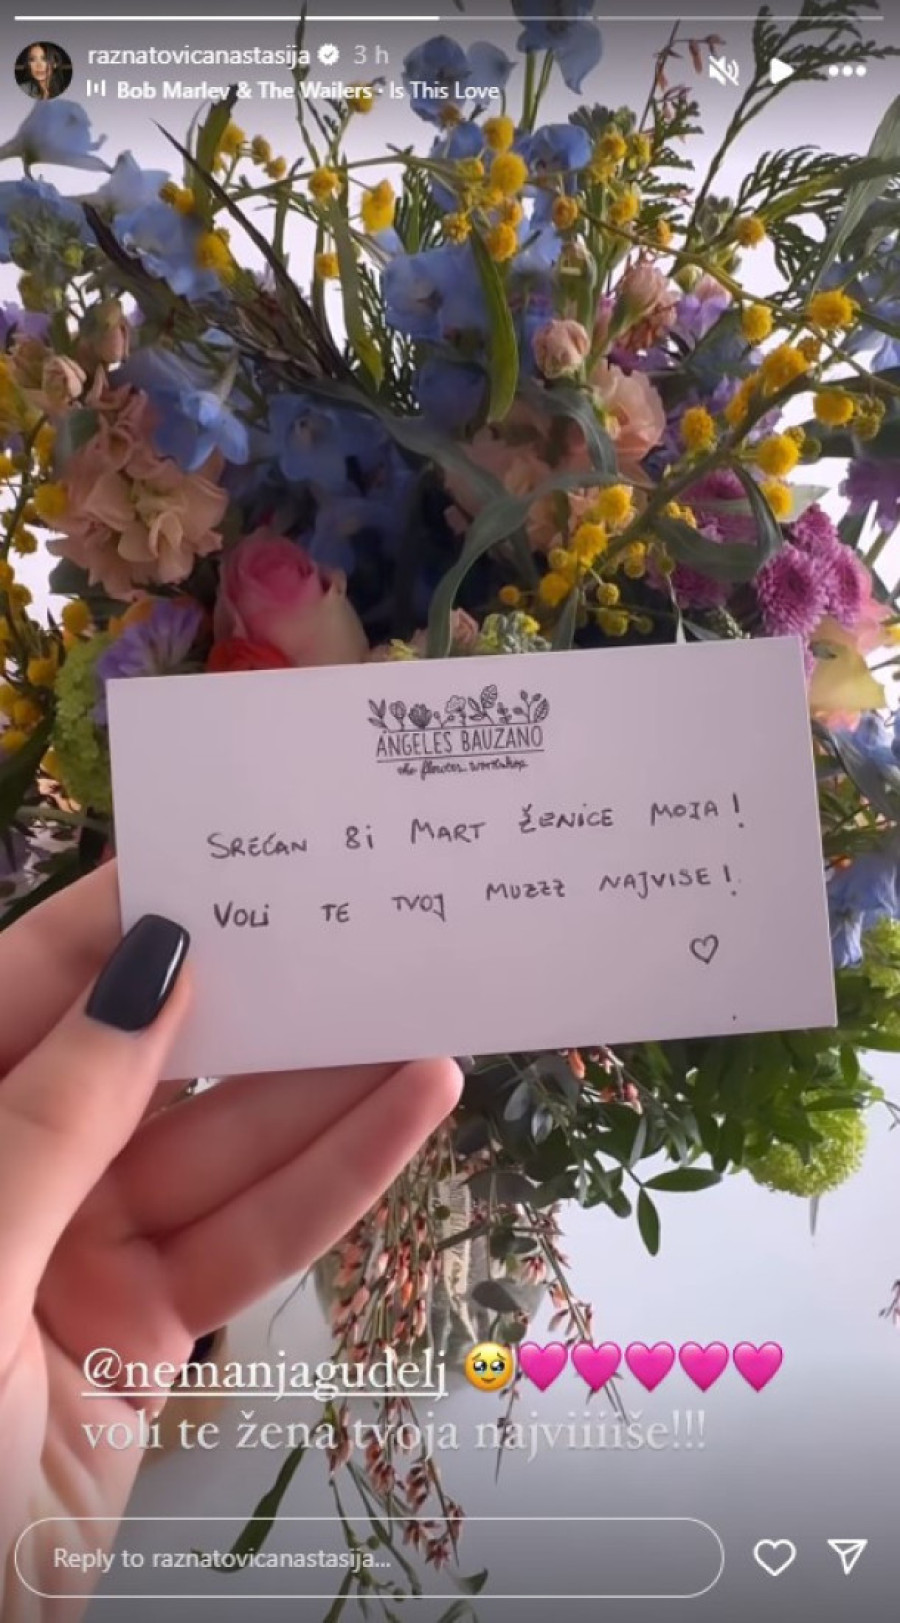 raznatovicanastasija 3 h
Bob Marley & The Wailers · Is This Love
ANGELES BAUZANO
the flower workshop
SREĆAN 8i MART ŽENICE MOJA!
VOLI TE TVOJ MUZZZ NAJVISE!
@nemanjagudelj 🥹💗💗💗💗💗
voli te žena tvoja najviiiiše!!!
Reply to raznatovicanastasija...